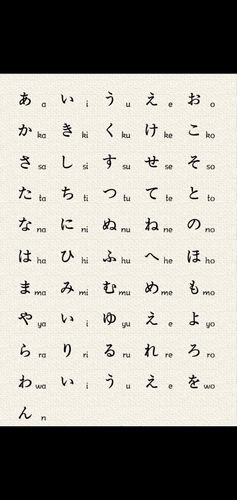 あ a い i う u え e お o
か ka き ki く ku け ke こ ko
さ sa し si す su せ se そ so
た ta ち ti つ tu て te と to
な na に ni ぬ nu ね ne の no
は ha ひ hi ふ hu へ he ほ ho
ま ma み mi む mu め me も mo
や ya い i ゆ yu え e よ yo
ら ra り ri る ru れ re ろ ro
わ wa い i う u え e を wo
ん n